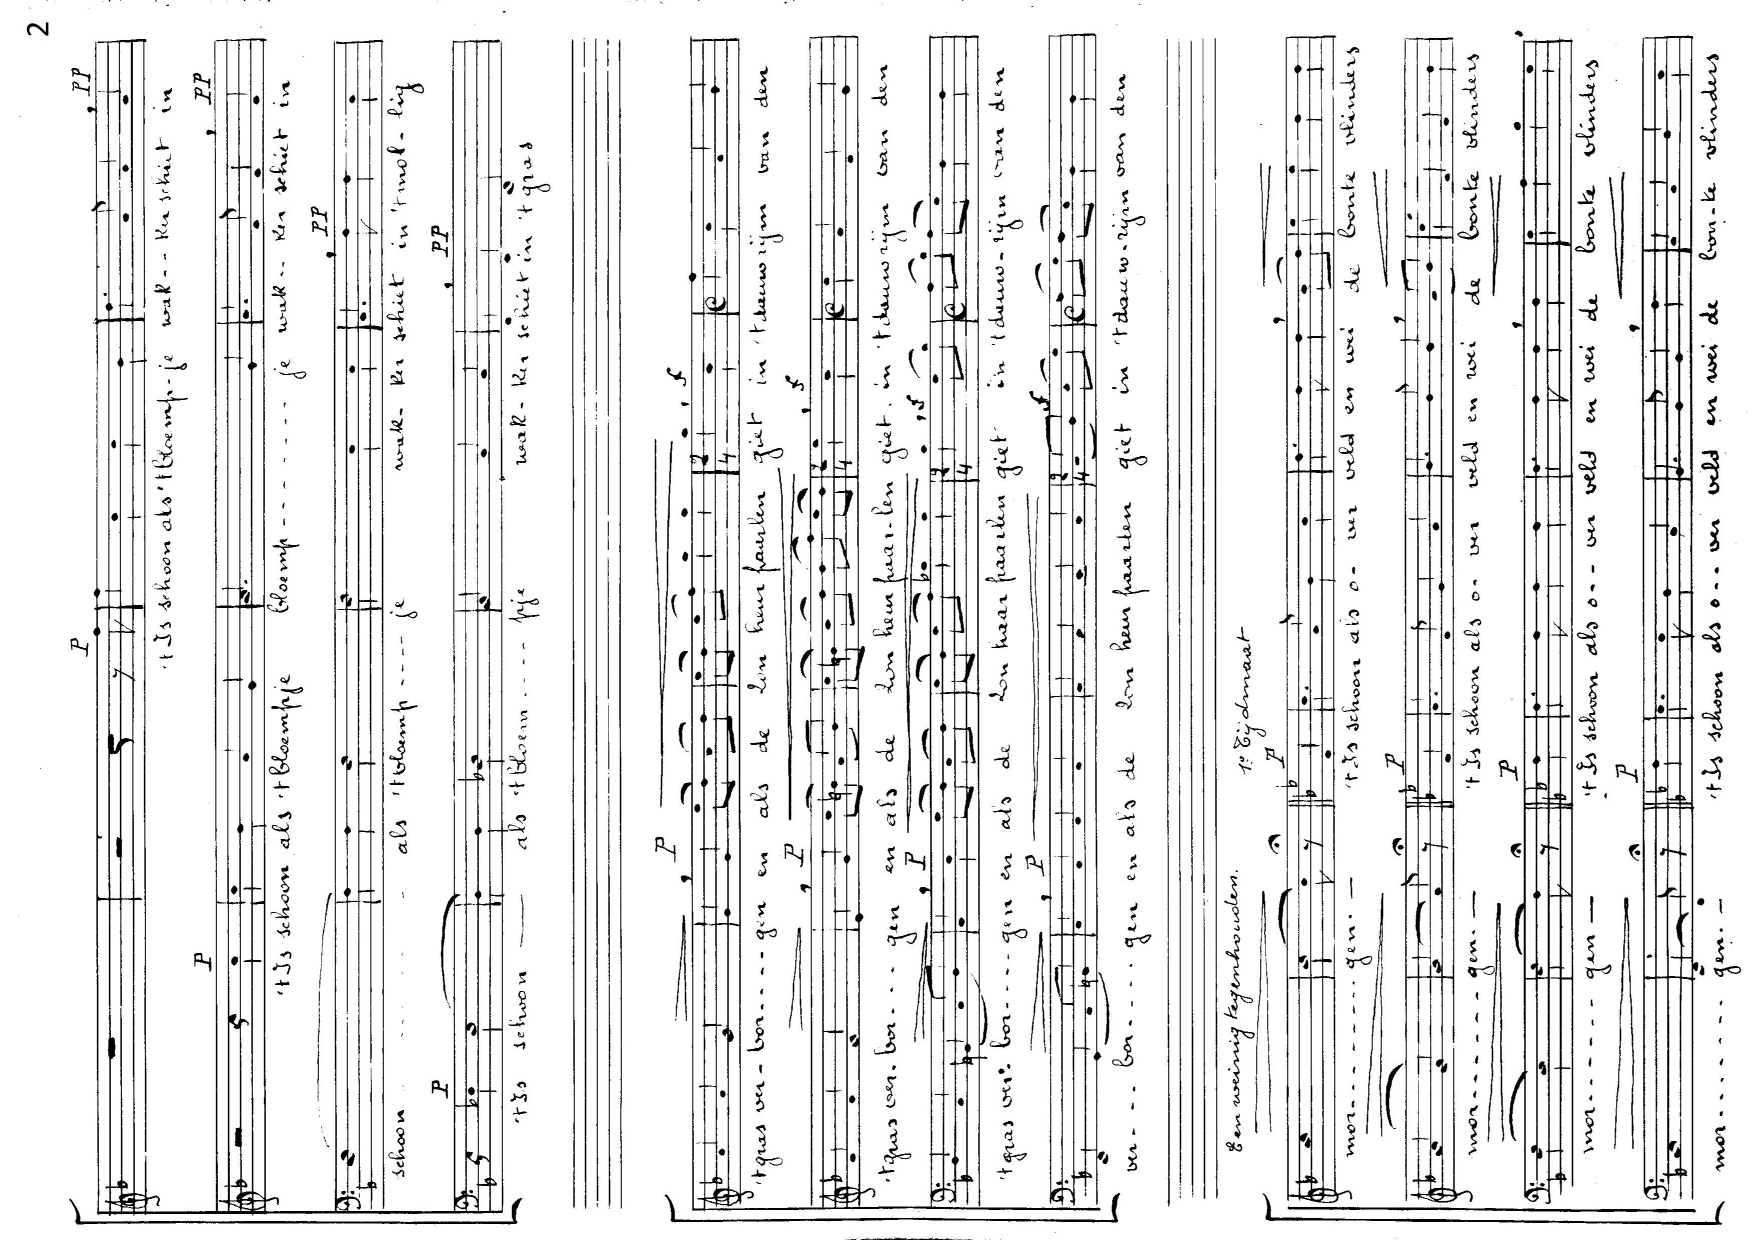 2
P , PP
't Is schoon als 't bloemp-je wak--ker schiet in
P , PP
't Is schoon als 't bloempje bloemp------je wak--ker schiet in
, PP
schoon als 't bloemp----je wak-ker schiet in 't mol-lig
P , PP
't Is schoon als 't bloem----pje wak-ker schiet in 't gras
, P , f
't gras ver-bor----gen en als de zon heur paarlen giet in 't dauwwijn van den
, P , f
't gras ver-bor----gen en als de zon heur paar-len giet in 't dauwwijn van den
, P , f
't gras ver-bor----gen en als de zon haar paarlen giet in 't dauw-wijn van den
, P , f
ver---bor-----gen en als de zon heur paarlen giet in 't dauwwijn van den
Een weinig tegenhouden. 1e Tijdmaat
P ,
mor---------gen.— 't Is schoon als o-ver veld en wei de bonte vlinders
P ,
mor---------gen.— 't Is schoon als o--ver veld en wei de bonte vlinders
P ,
mor---------gen — 't Is schoon als o--ver veld en wei de bonte vlinders
P ,
mor---------gen.— 't Is schoon als o---ver veld en wei de bon-te vlinders